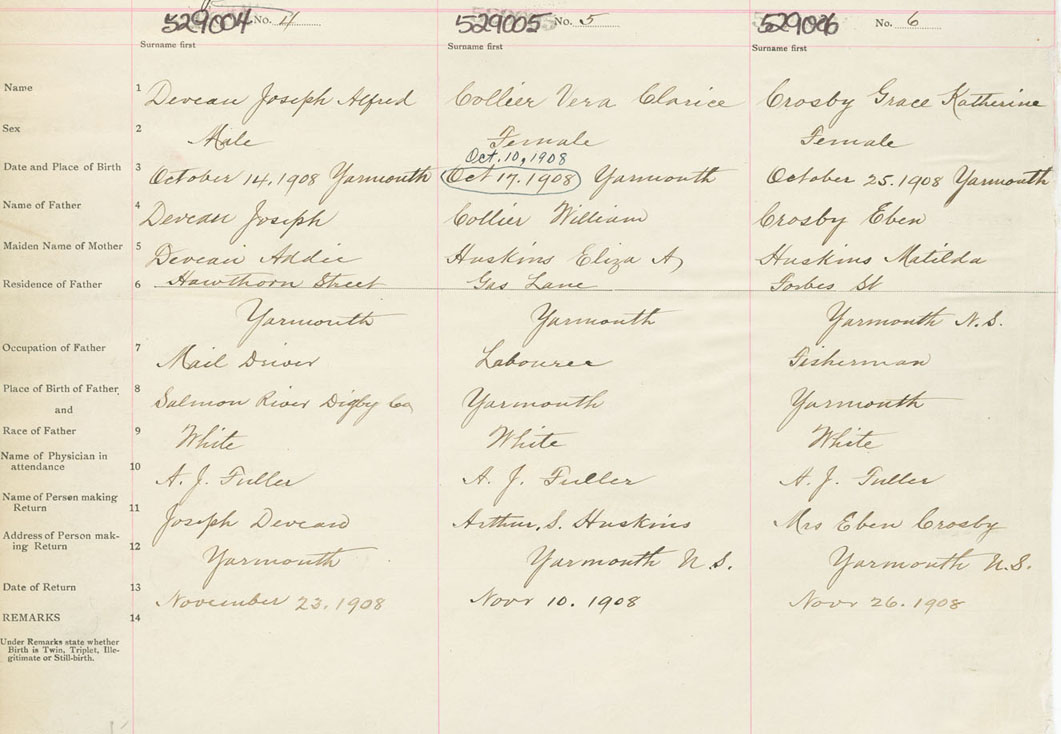 529004 No. 4 529005 No. 5 529006 No. 6
Surname first Surname first Surname first
Name 1 Deveau Joseph Alfred Collier Vera Clarice Crosby Grace Katherine
Sex 2 Male Female Female
Oct. 10, 1908
Date and Place of Birth 3 October 14. 1908 Yarmouth Oct 17. 1908 Yarmouth October 25. 1908 Yarmouth
Name of Father 4 Deveau Joseph Collier William Crosby Eben
Maiden Name of Mother 5 Deveau Addie Huskins Eliza A Huskins Matilda
Residence of Father 6 Hawthorn Street Gas Lane Forbes St
Yarmouth Yarmouth Yarmouth N.S.
Occupation of Father 7 Mail Driver Labourer Fisherman
Place of Birth of Father 8 Salmon River Digby Co Yarmouth Yarmouth
and
Race of Father 9 White White White
Name of Physician in
attendance 10 A. J. Fuller A. J. Fuller A. J. Fuller
Name of Person making
Return 11 Joseph Deveau Arthur. S. Huskins Mrs Eben Crosby
Address of Person mak-
ing Return 12 Yarmouth Yarmouth N.S. Yarmouth N.S.
Date of Return 13 November 23. 1908 Novr 10. 1908 Novr 26. 1908
REMARKS 14
Under Remarks state whether
Birth is Twin, Triplet, Ille-
gitimate or Still-birth.